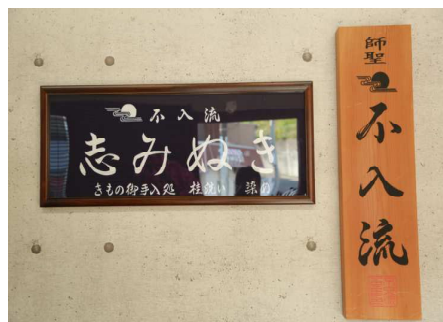 不入流
志みぬき
きもの御手入処 桂洗い 染め
師聖
不入流